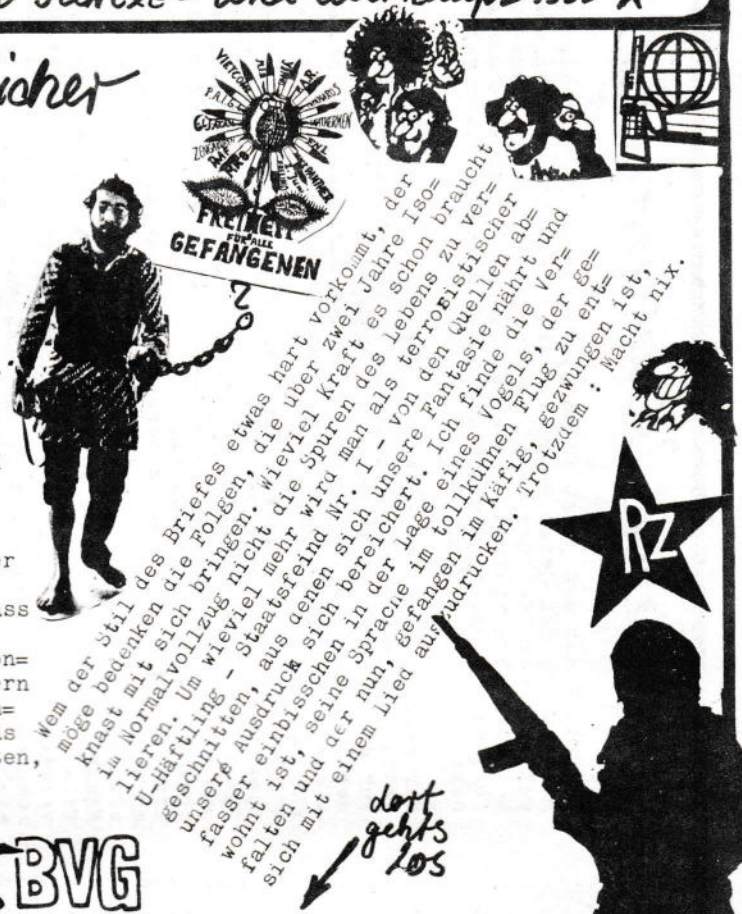 icher
VIETCONG
P.A.I.G.
FREIHEIT
FÜR ALLE
GEFANGENEN
?
Wem der Stil des Briefes etwas hart vorkommt, der
möge bedenken die Folgen, die über zwei Jahre Iso=
knast mit sich bringen. Wieviel Kraft es schon braucht
im Normalvollzug nicht die Spuren des Lebens zu ver=
lieren. Um wieviel mehr wird man als terroristischer
U-Häftling - Staatsfeind Nr. I - von den Quellen ab=
geschnitten, aus denen sich unsere Fantasie nährt und
unser Ausdruck sich bereichert. Ich finde die Ver=
fasser einbisschen in der Lage eines Vogels, der ge=
wohnt ist, seine Sprache im tollkühnen Flug zu ent=
falten und der nun, gefangen im Käfig, gezwungen ist,
sich mit einem Lied auszudrücken. Trotzdem : Macht nix.
RZ
r
ss
n=
rn
=
s
en,
dort
gehts
los
BVG